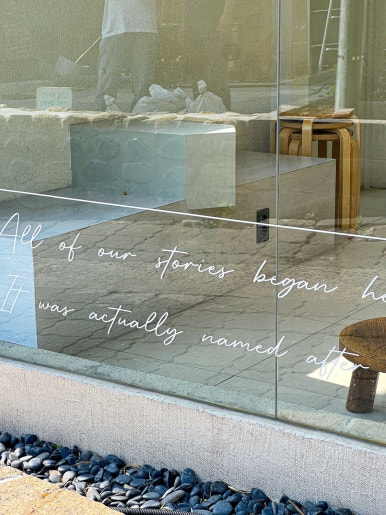 All of our stories began he
It was actually named after